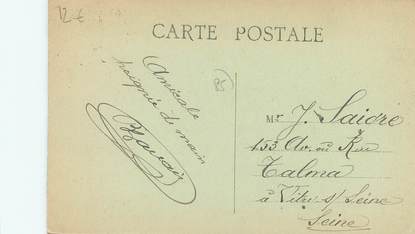 12 €
CARTE POSTALE
85
Amicale
poignée de main
Mr J.
153 Av. ou Rue
Talma
à Vitry s/ Seine
Seine